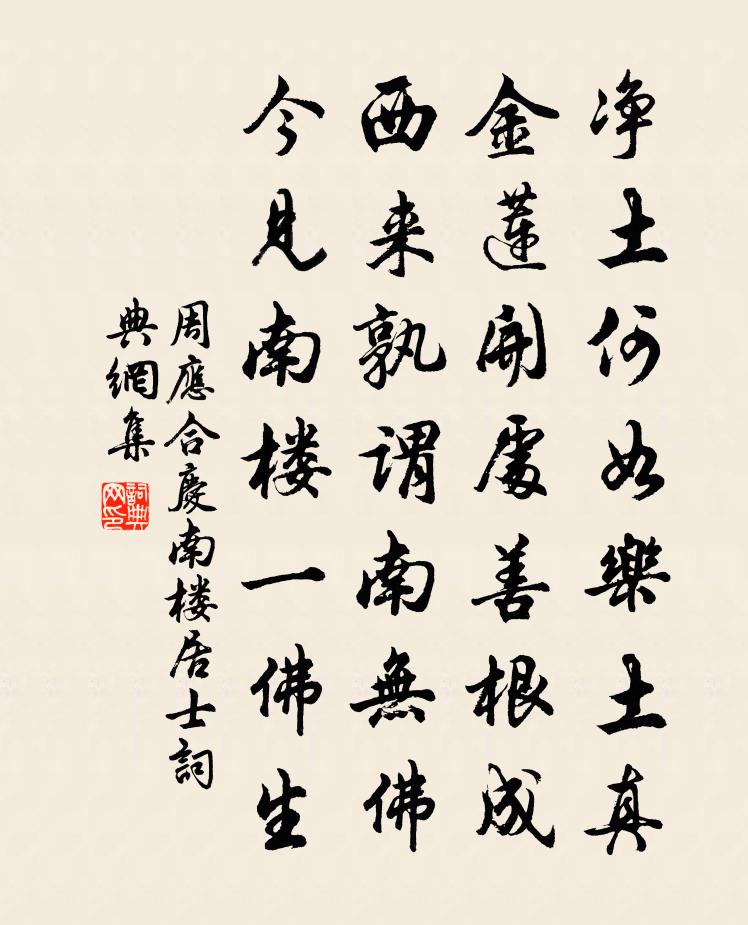 净土何如樂土真
金蓮開處善根成
西来孰謂南無佛
今見南楼一佛生
周應合慶南楼居士詞
典網集
詞典
网印